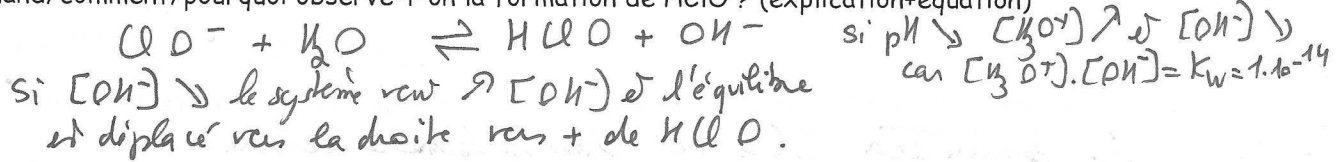 /comment/pourquoi observe-t-on la formation de HClO ? (explication+équation)
ClO⁻ + H₂O ⇌ HClO + OH⁻ si pH ↘ [H₃O⁺] ↗ et [OH⁻] ↘
car [H₃O⁺].[OH⁻] = Kw = 1.10⁻¹⁴
Si [OH⁻] ↘ le système veut ↗ [OH⁻] et l'équilibre
est déplacé vers la droite vers + de HClO.